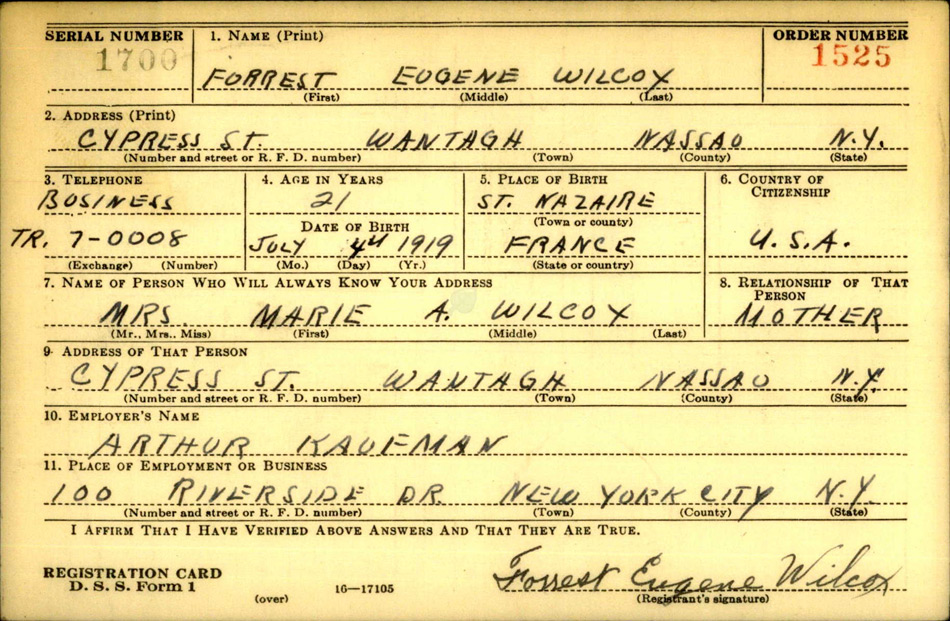 SERIAL NUMBER 1. NAME (Print) ORDER NUMBER
1700 FORREST EUGENE WILCOX 1525
(First) (Middle) (Last)
2. ADDRESS (Print)
CYPRESS ST. WANTAGH NASSAU N.Y.
(Number and street or R. F. D. number) (Town) (County) (State)
3. TELEPHONE 4. AGE IN YEARS 5. PLACE OF BIRTH 6. COUNTRY OF CITIZENSHIP
BUSINESS 21 ST. NAZAIRE
DATE OF BIRTH (Town or county)
TR. 7-0008 JULY 4TH 1919 FRANCE U.S.A.
(Exchange) (Number) (Mo.) (Day) (Yr.) (State or country)
7. NAME OF PERSON WHO WILL ALWAYS KNOW YOUR ADDRESS 8. RELATIONSHIP OF THAT PERSON
MRS. MARIE A. WILCOX MOTHER
(Mr., Mrs., Miss) (First) (Middle) (Last)
9. ADDRESS OF THAT PERSON
CYPRESS ST. WANTAGH NASSAU N.Y.
(Number and street or R. F. D. number) (Town) (County) (State)
10. EMPLOYER'S NAME
ARTHUR KAUFMAN
11. PLACE OF EMPLOYMENT OR BUSINESS
100 RIVERSIDE DR. NEW YORK CITY N.Y.
(Number and street or R. F. D. number) (Town) (County) (State)
I AFFIRM THAT I HAVE VERIFIED ABOVE ANSWERS AND THAT THEY ARE TRUE.
REGISTRATION CARD
D. S. S. Form 1 Forrest Eugene Wilcox
(over) 16-17105 (Registrant's signature)